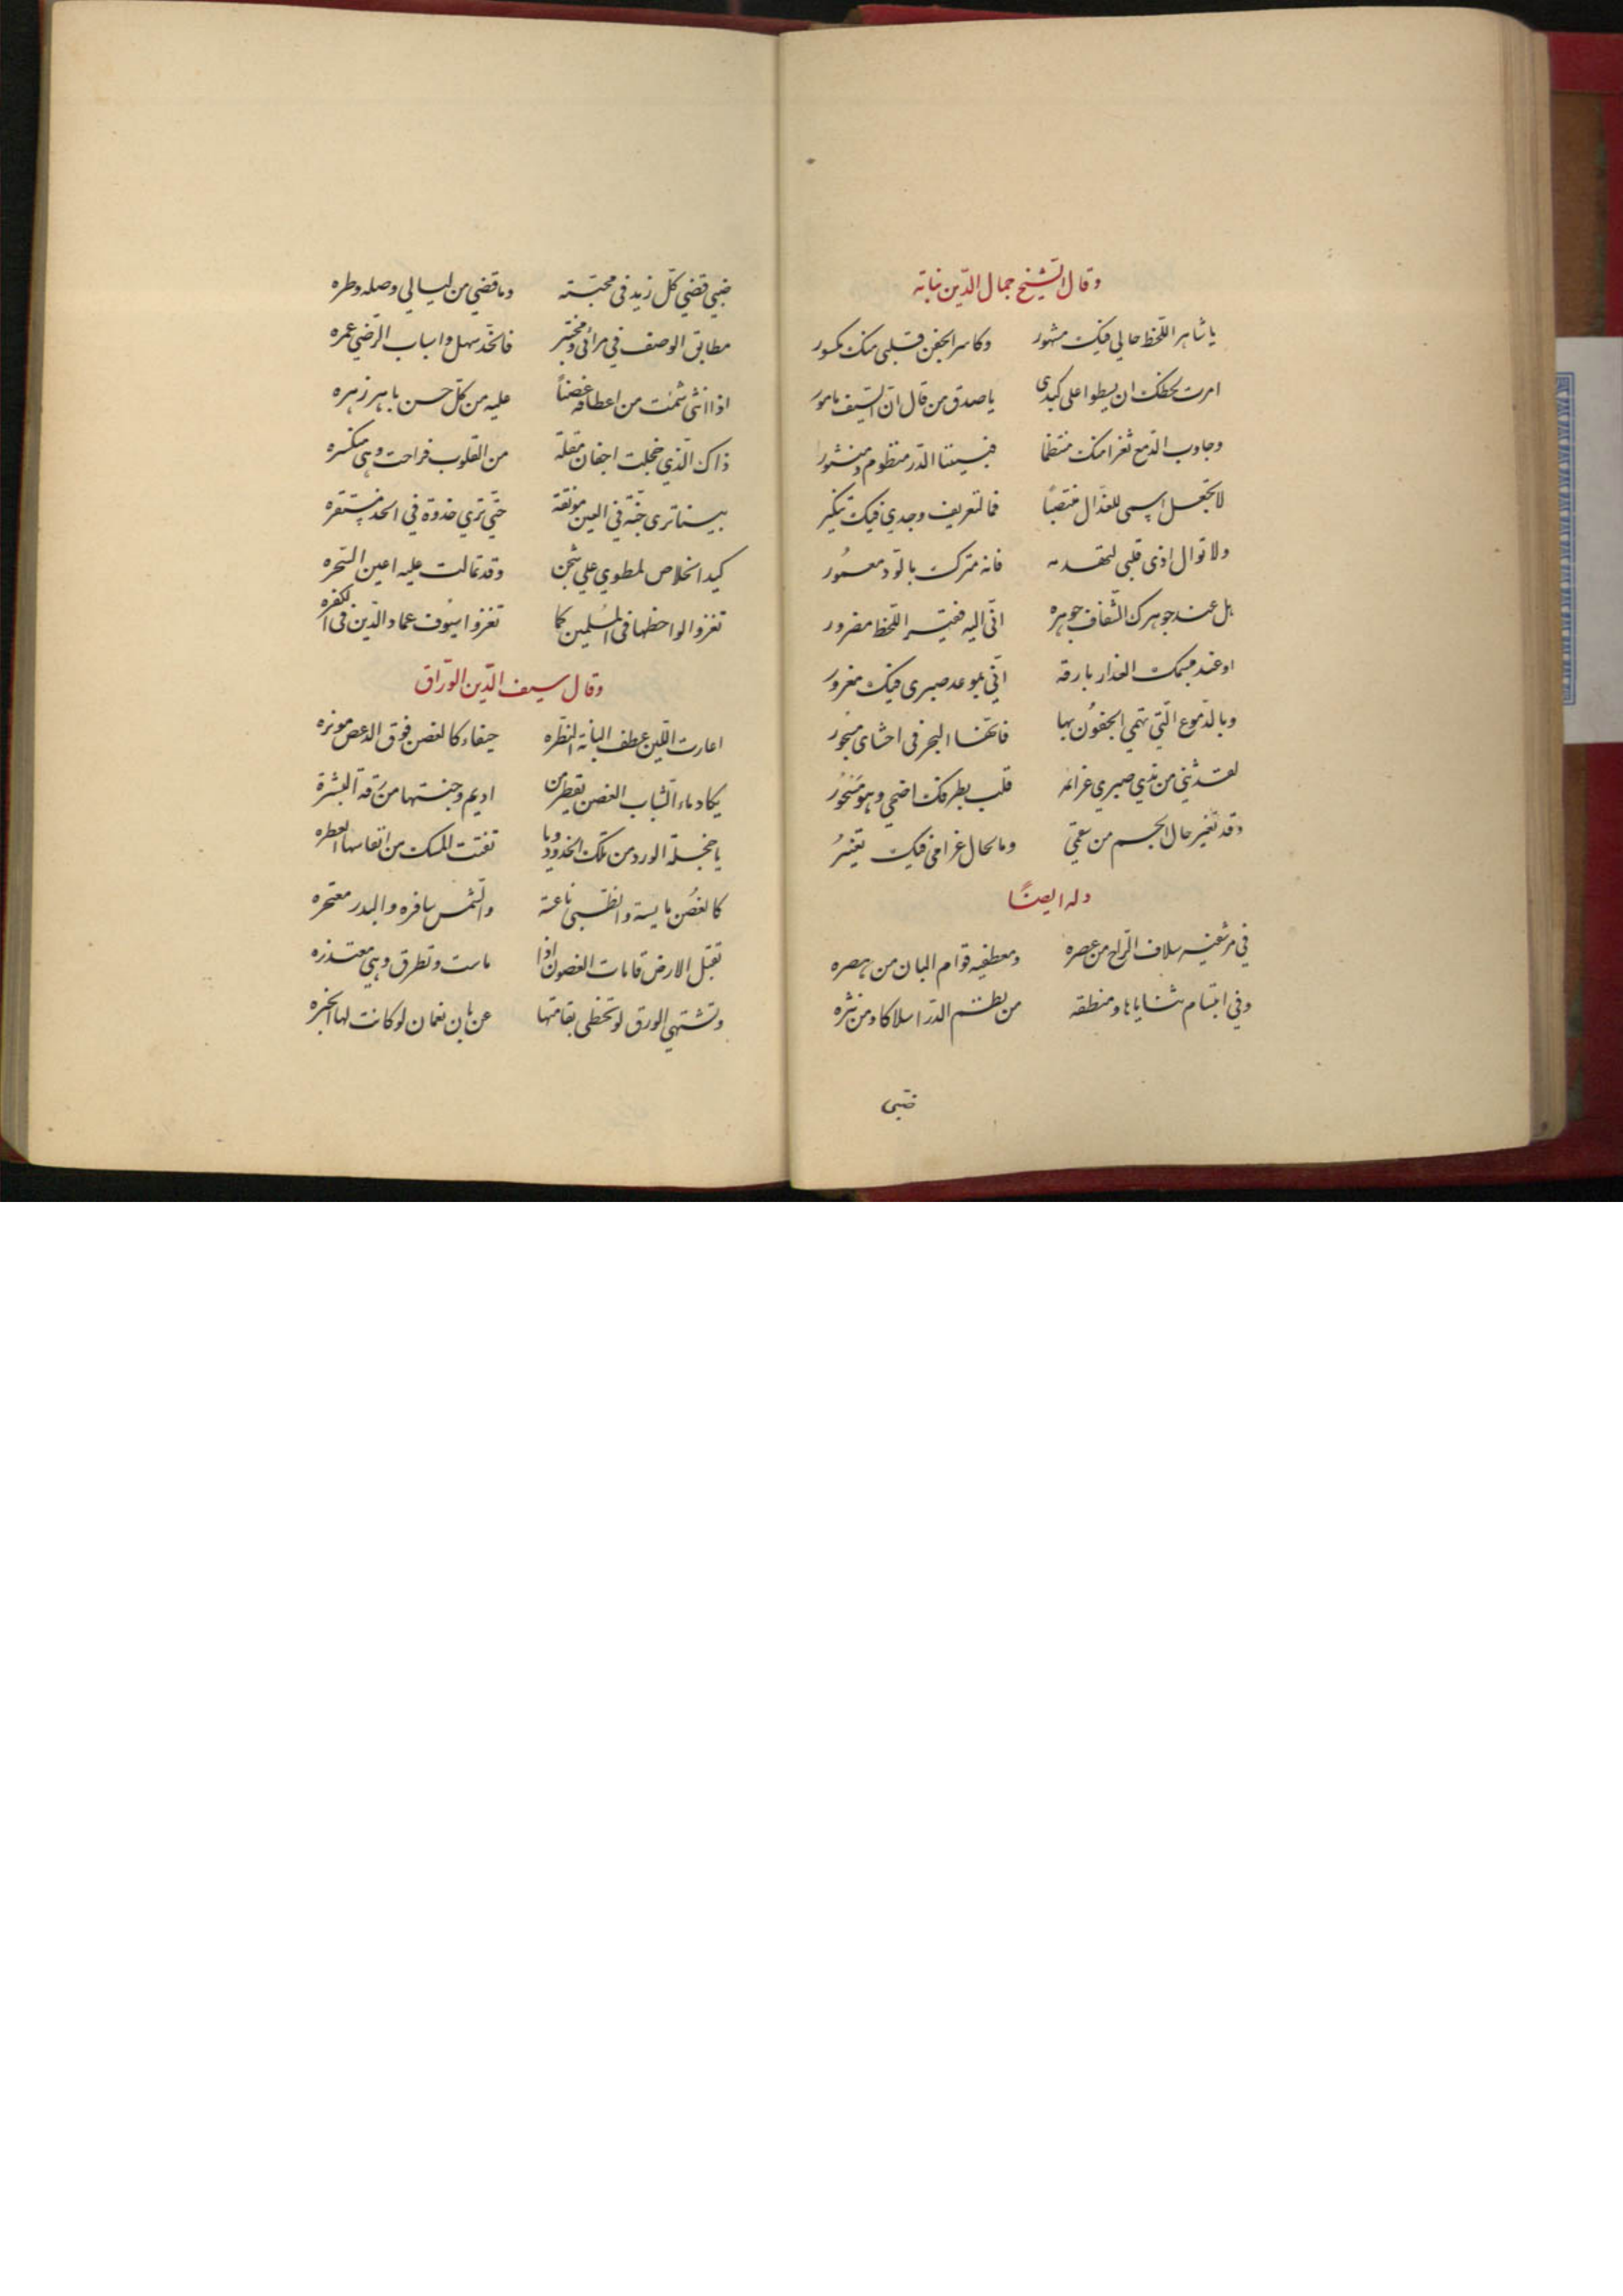 وقال الشيخ جمال الدين نباته
يا شاهر اللحظ حالي فيك مشهور وكاسر الجفن قلبي منك مكسور
امرت لحظك ان يسطوا على كبدي يا صدق من قال ان السيف مامور
وجاوب الدمع ثغرا منك منتظما فبيننا الدر منظوم ومنثور
لا تجعل اسمي للعذال منتصبا فما لتعريف وجدي فيك تنكير
ولا توال اذى قلبي لتهدمه فانه منزل بالود معمور
بل عند جوهرك الشفاف جوهره اني اليه فقير اللحظ مضرور
او عند مبسمك الغدار بارقه اني بموعد صبري فيك مغرور
وبالدموع التي تهمي الجفون بها فانها البحر في احشاي مسجور
لقد ثني من يدي صبري عزائمه قلب بطرفك اضحي وهو مسحور
وقد تغير حال الجسم من سقمي وما لحال غرامي فيك تغيير
وله ايضا
في مرشفيه سلاف الراح من عصره ومعطفيه قوام البان من هصره
وفي ابتسام ثناياها ومنطقه من نظم الدر اسلاكا ومن نثره
ضبي
ضبي قضي كل زيد في محبته وما قضي من ليالي وصله وطره
مطابق الوصف في مرائي ومختبر فالخد سهل واسباب الرضي عمره
اذا انثني شمت من اعطافه غضنا عليه من كل حسن باهر زهره
ذاك الذي خجلت اجفان مقلة من القلوب فراحت وهي منكسره
بينا تري جنة في العين مونقة حتي تري جذوة في الخد مستقره
كيد الخلاص لمطوي علي شجن وقد تمالت عليه اعين السحره
تغزوا لواحظها في المسلمين كما تغزوا سيوف عماد الدين في الكفره
وقال سيف الدين الوراق
اعارت اللين عطف البانة النظره هيفاء كالغصن فوق الدعص موتزره
يكاد ماء الشباب الغصن يقطر من اديم وجنتها من رقة البشرة
يا خجلة الورد من تلك الخدود ويا تفتت المسك من انفاسها العطره
كالغصن مايسة والظبي ناعسة والشمس سافره والبدر معتجره
تقبل الارض قامات الغصون اذا ماست وتطرق وهي معتذره
وتشتهي الورق لو تحظى بقامتها عن بان نعمان لو كانت لها الخيره